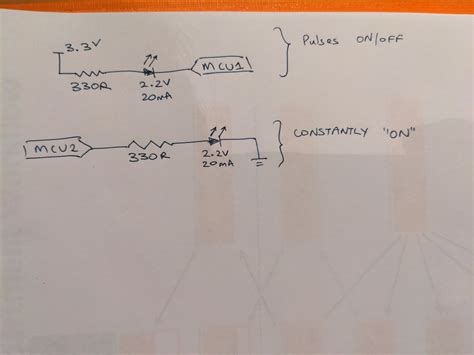 3.3V
330R
2.2V
20mA
MCU1
Pulses ON/OFF
MCU2
330R
2.2V
20mA
CONSTANTLY "ON"